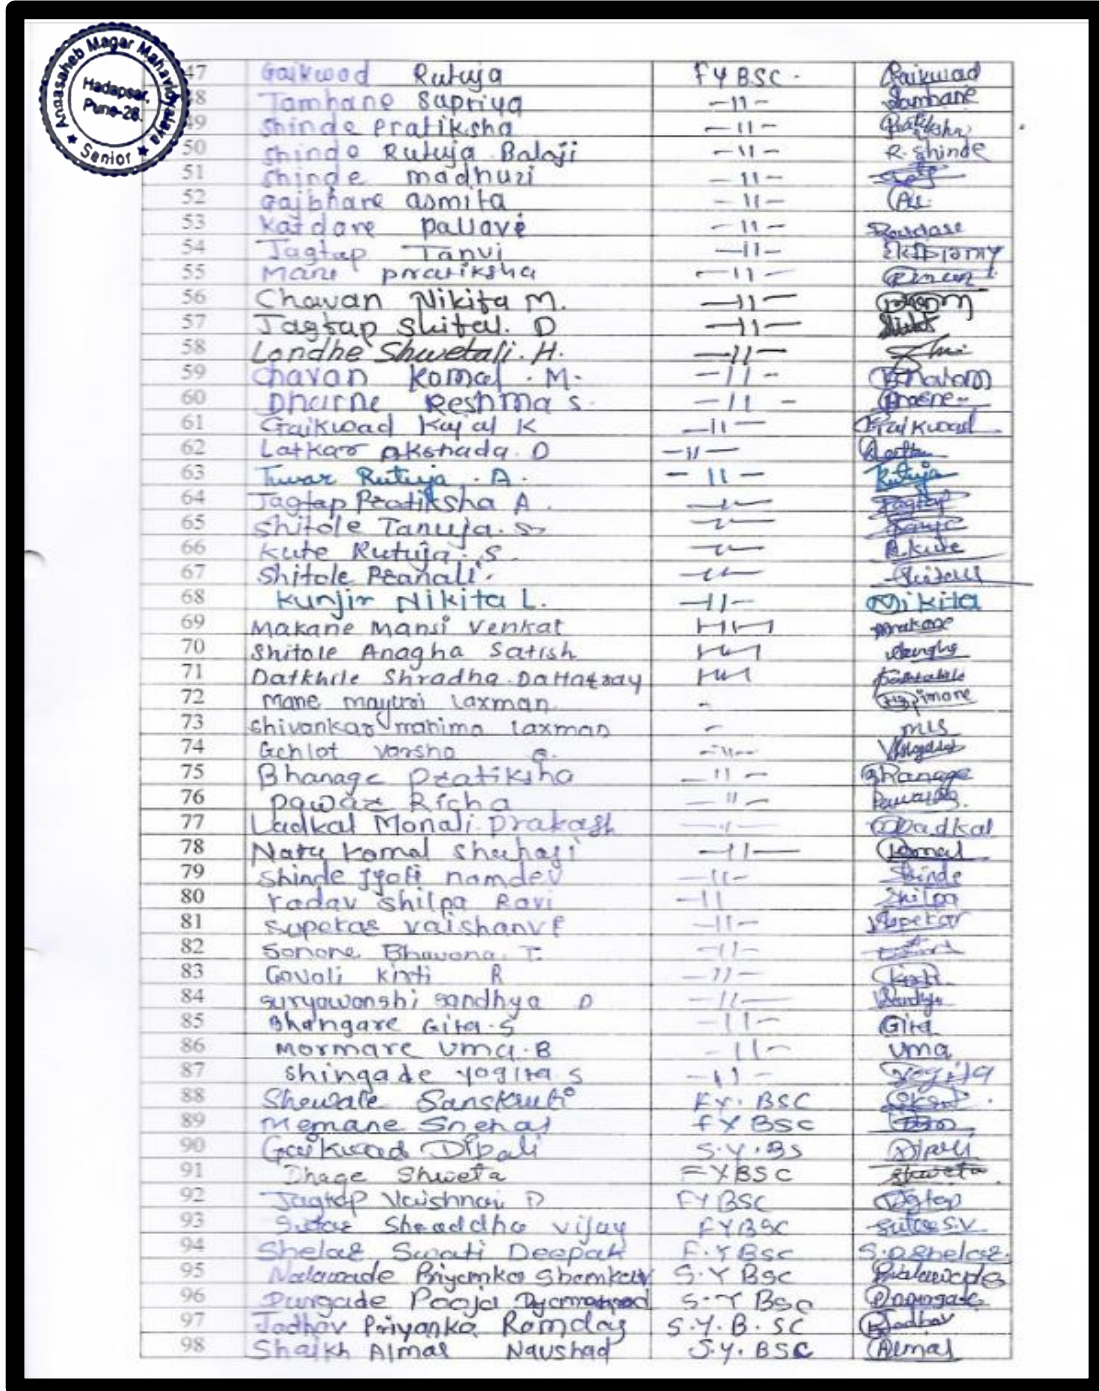 Annasaheb Magar Mahavidyalaya
Hadapsar,
Pune-28.
★ Senior ★
47 Gaikwad Rutuja FYBSC. Gaikwad
48 Tamhane Supriya -11- Tamhane
49 Shinde Pratiksha -11- Pratiksha
50 Shinde Rutuja Balaji -11- R. Shinde
51 Shinde madhuri -11-
52 Gaibhare asmita -11-
53 Katdare Pallavi -11-
54 Jagtap Tanvi -11-
55 Mane pratiksha -11-
56 Chavan Nikita M. -11-
57 Jagtap Shital. D -11-
58 Londhe Shwetali. H. -11-
59 Chavan Komal . M. -11-
60 Dhurne Reshma S. -11-
61 Gaikwad Kajal K -11- Gaikwad
62 Latkar Akshada. D -11-
63 Tuvar Rutuja . A. -11- Rutuja
64 Jagtap Pratiksha A. -11- Jagtap
65 Shitole Tanuja. S. -11-
66 Kute Rutuja . S. -11- R.kute
67 Shitole Pranali. -11-
68 Kunjir Nikita L. -11- Nikita
69 Makane Mansi Venkat -11- Makane
70 Shitole Anagha Satish -11-
71 Datkhile Shradha Dattatray -11-
72 Mane mayuri laxman
73 Shivankar mahima laxman
74 Gehlot varsha -11-
75 Bhanage Pratiksha -11- Bhanage
76 Pawar Richa -11-
77 Ladkal Monali prakash -11- Ladkal
78 Komal Shahaji -11- Komal
79 Shinde Jyoti namdev -11- Shinde
80 Yadav Shilpa Ravi -11 Shilpa
81 Supekar vaishanvi -11- Supekar
82 Sonone Bhavana. T. -11-
83 Govali kirti R -11- Kirti
84 Suryawanshi Sandhya D -11- Sandhya
85 Bhangare Gita.S -11- Gita
86 Mormare Uma.B -11- Uma
87 Shingade Yogita S -11- Yogita
88 Shewale Sanskruti FY. BSC
89 Memane Snehal FY BSC
90 Gaikwad Dipali S.Y.BS Dipali
91 Dhage Shweta FYBSC Shweta
92 Jagtap Vaishnavi D FYBSC Jagtap
93 Sutar Shraddha vijay FYBSC Sutar S.V.
94 Shelar Swati Deepak F.Y BSc S.D.Shelar.
95 Nalawade Priyanka Shankar S.Y BSc Nalawade
96 Dungade Pooja S.Y BSc
97 Jadhav Priyanka Ramdas S.Y.B.SC Jadhav
98 Shaikh Almas Naushad S.Y. BSC Almas